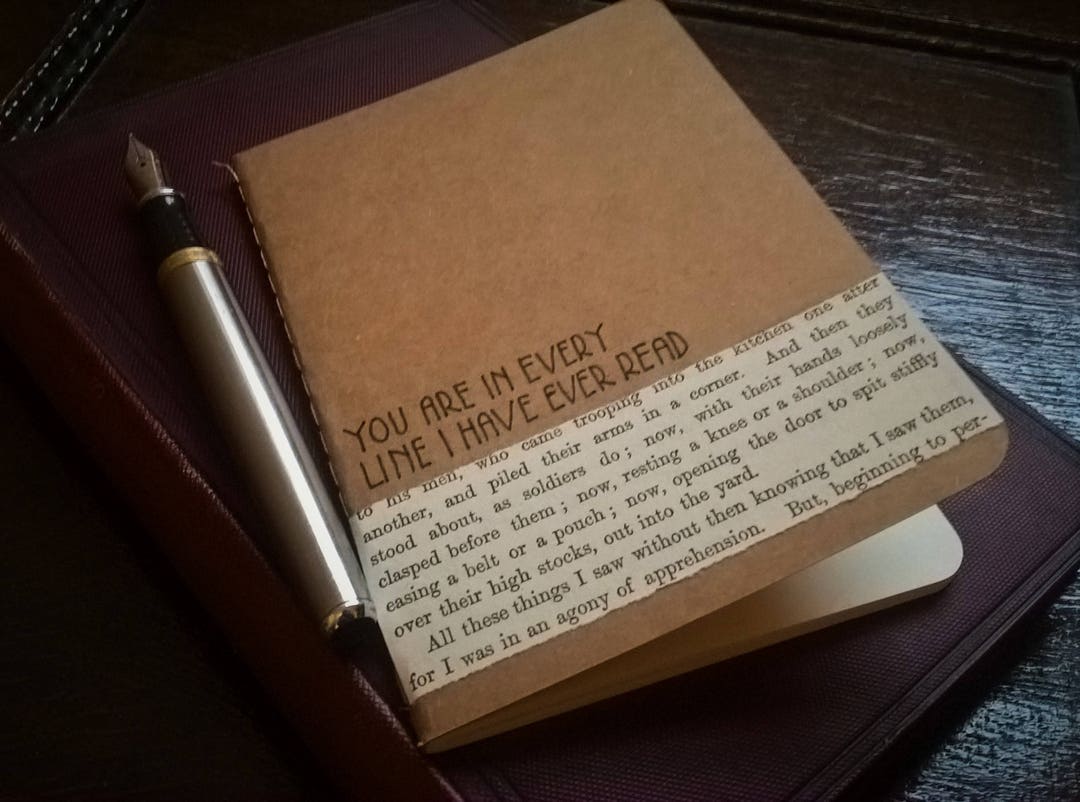 YOU ARE IN EVERY
LINE I HAVE EVER READ
to his men, who came trooping into the kitchen one after
another, and piled their arms in a corner. And then they
stood about, as soldiers do; now, with their hands loosely
clasped before them; now, resting a knee or a shoulder; now,
easing a belt or a pouch; now, opening the door to spit stiffly
over their high stocks, out into the yard.
All these things I saw without then knowing that I saw them,
for I was in an agony of apprehension. But, beginning to per-